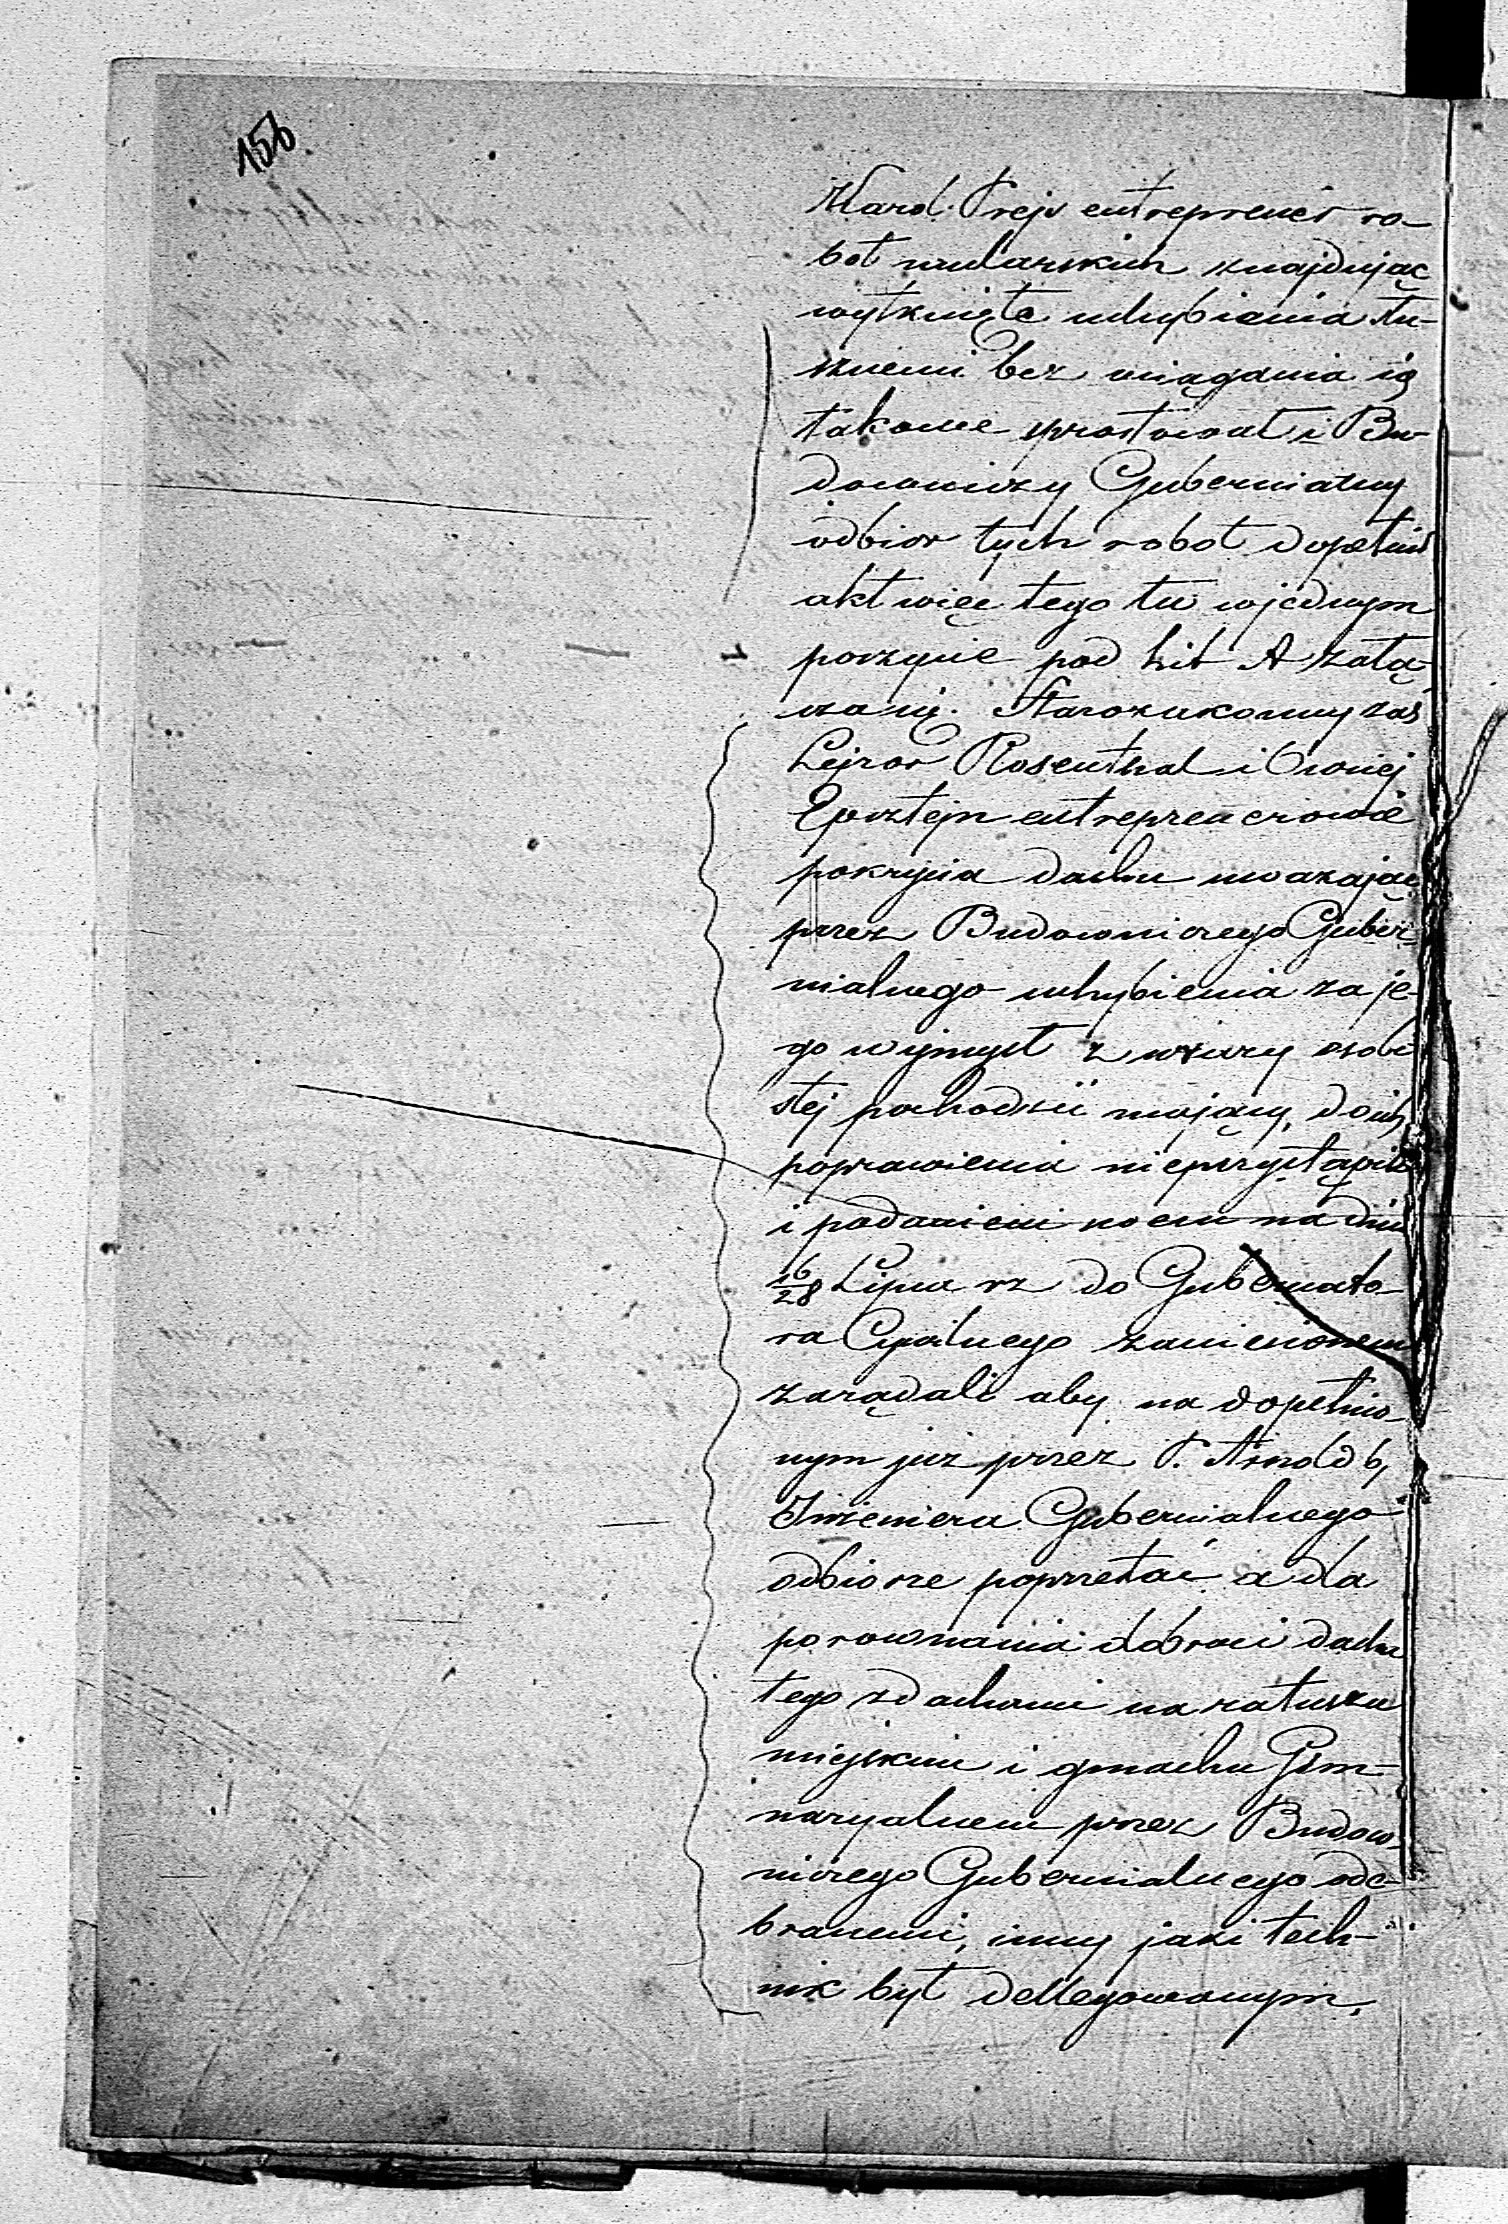 156
Karol Prejs entreprener ro-
bot mularskich znajdując
wytknięte uchybienia słu-
sznemi bez ociągania się
takowe sprostował i Bu-
downiczy Gubernialny
odbior tych robot dopełnił
akt więc tego tu wjednym
poszycie pod Lit A załą-
cza się. Starozakonny zaś
Lejzor Rosenthal i
Epsztejn entreprenerowie
pokrycia dachu uważając
przez Budowniczego Guber-
nialnego uchybienia za je-
go wymysł z urazy osobi
stej pochodzić mający, do ich
poprawienia nieprzystąpili
i podaniem na dniu
16/28 Lipca rz do Gubernato-
ra Cywilnego zaniesionem
zarządali aby na dopełnio-
nym już przez P. Arnold b,
Inżeniera Gubernialnego
odbiorze poprzestać a dla
porownania dobroci dachu
tego z dachami na ratuszu
miejskim i gmachu Gim-
nazyalnem przez Budow-
niczego Gubernialnego ode-
branemi, inny jaki tech-
nik był dellegowanym.